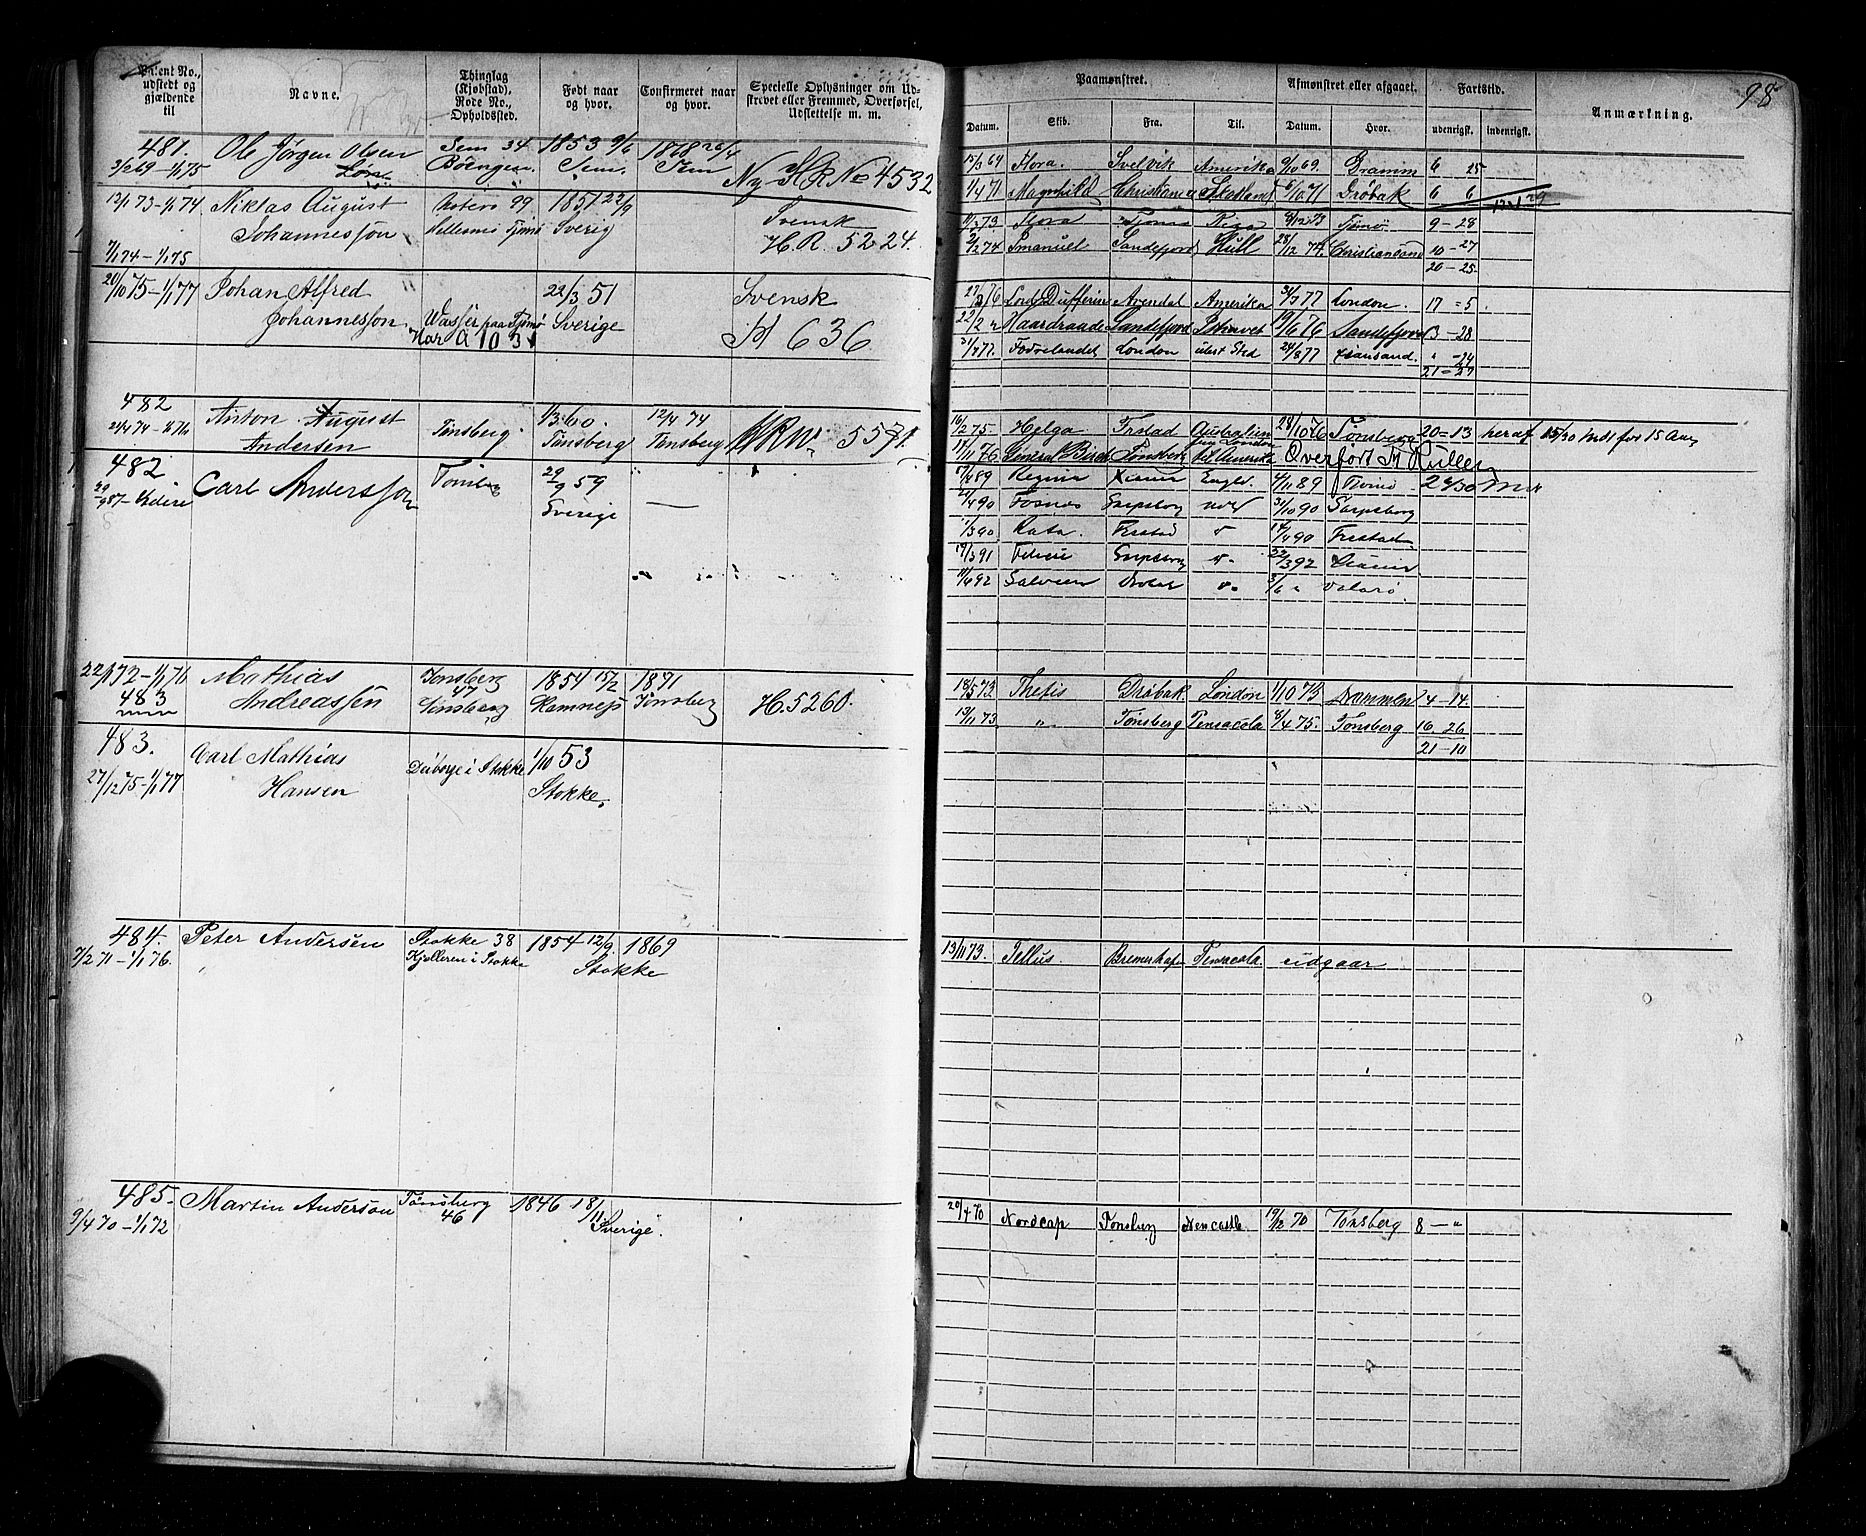 98
Patent No., udstedt og gjældende til
Navne.
Thinglag (Kjøbstad), Rode No., Opholdssted.
Født naar og hvor.
Confirmeret naar og hvor.
Specielle Oplysninger om Udskrevet eller Fremmed, Overførsel, Udslettelse m. m.
Paamønstret.
Afmønstret eller afgaaet.
Fartstid.
Anmærkning.
Datum. Skib. Fra. Til. Datum. Hvor. udenrigst. indenrigst.
481. Ole Jørgen Olsen Sem 34 1853 9/6 1868 26/4
3/2 69 – 1/1 75 Sem. Sem Ny H R No 4532
15/3 69 Flora. Svelvik Amerika 9/10 69. Dramm 6 25
1/4 71 Magnhild Christiania Skotland 6/10 71 Drøbak 6 6
12/1 73 – 1/1 74 Niklas August 99 1851 22/9 Svensk
Johannesson Tjømø Sverig H. R. 5224.
7/1 74 – 1/1 75
73 Flora Riga 8/12 73 Tjømø 9 – 28
2/2 74 Imanuel Sandefjord Hull 28/12 74. Christiansand 10 – 27
20 – 25
20/10 75 – 1/1 77 Johan Alfred 22/3 51 Svensk
Johannesson. Wasser paa Tjømø Sverige H 636
Har A 1031
27/3 76 Lord Dufferin Arendal Amerika 31/7 77 London. 17 = 5
22/2 " Haardraade Sandefjord 19/6 76 Sandefjord 3 – 28
Fædrelandet London ubest Sted 24/8 77 " – 24
21 = 27
482 Anton August 1/3 60. 12/4 74
21/4 74 – 1/1 76 Andersen Tønsberg. Tønsberg Tønsberg HR No 5571.
16/2 75 Helga Frstad Australien 28/10 76 Tønsberg 20 = 13 heraf 15/30 Mdt for 15 Aar
17/11 76 General Birch Tønsberg til Amerika Overført til Rullen
482 Carl Andersson Tønsbg 29/9 59 —
29/9 87 – Videre Sverige
17/4 89 Regina Engl. 4/11 89 Tjømø 2 6/30 Mdr
21/4 90 Fosnæs Sarpsborg 31/10 90 Sarpsborg
1/3 90 Kata. Frestad 14/4 90 Frestad
19/3 91 Sarpsborg 22/3 92
11/4 92 3/6 "
22/1 72 – 1/1 76 Mathias Tønsberg 1854 15/2 1871
483 Andreassen 47 Tønsberg Ramnes Tønsberg H. 5260.
18/5 73 Thetis Drøbak London 1/10 73 Drammen 4 – 14.
13/11 73 " Tønsberg Pensacola 8/4 75. Tønsberg 16. 26
21 – 10
483. Carl Mathias 1/10 53
27/12 75 – 1/1 77 Hansen i Stokke Stokke.
484. Peter Andersen Stokke 38 1854 12/9. 1869
7/2 71 – 1/1 76. Kjelleren i Stokke Stokke
13/11 73. Tellus Bremerhafn Pensacola udgaar
485. Martin Anderson Tønsberg 1846 18/11
9/4 70 – 1/1 72 46 Sverige.
20/4 70 Nordcap Tønsberg Newcastle 19/12 70 Tønsberg 8 – "